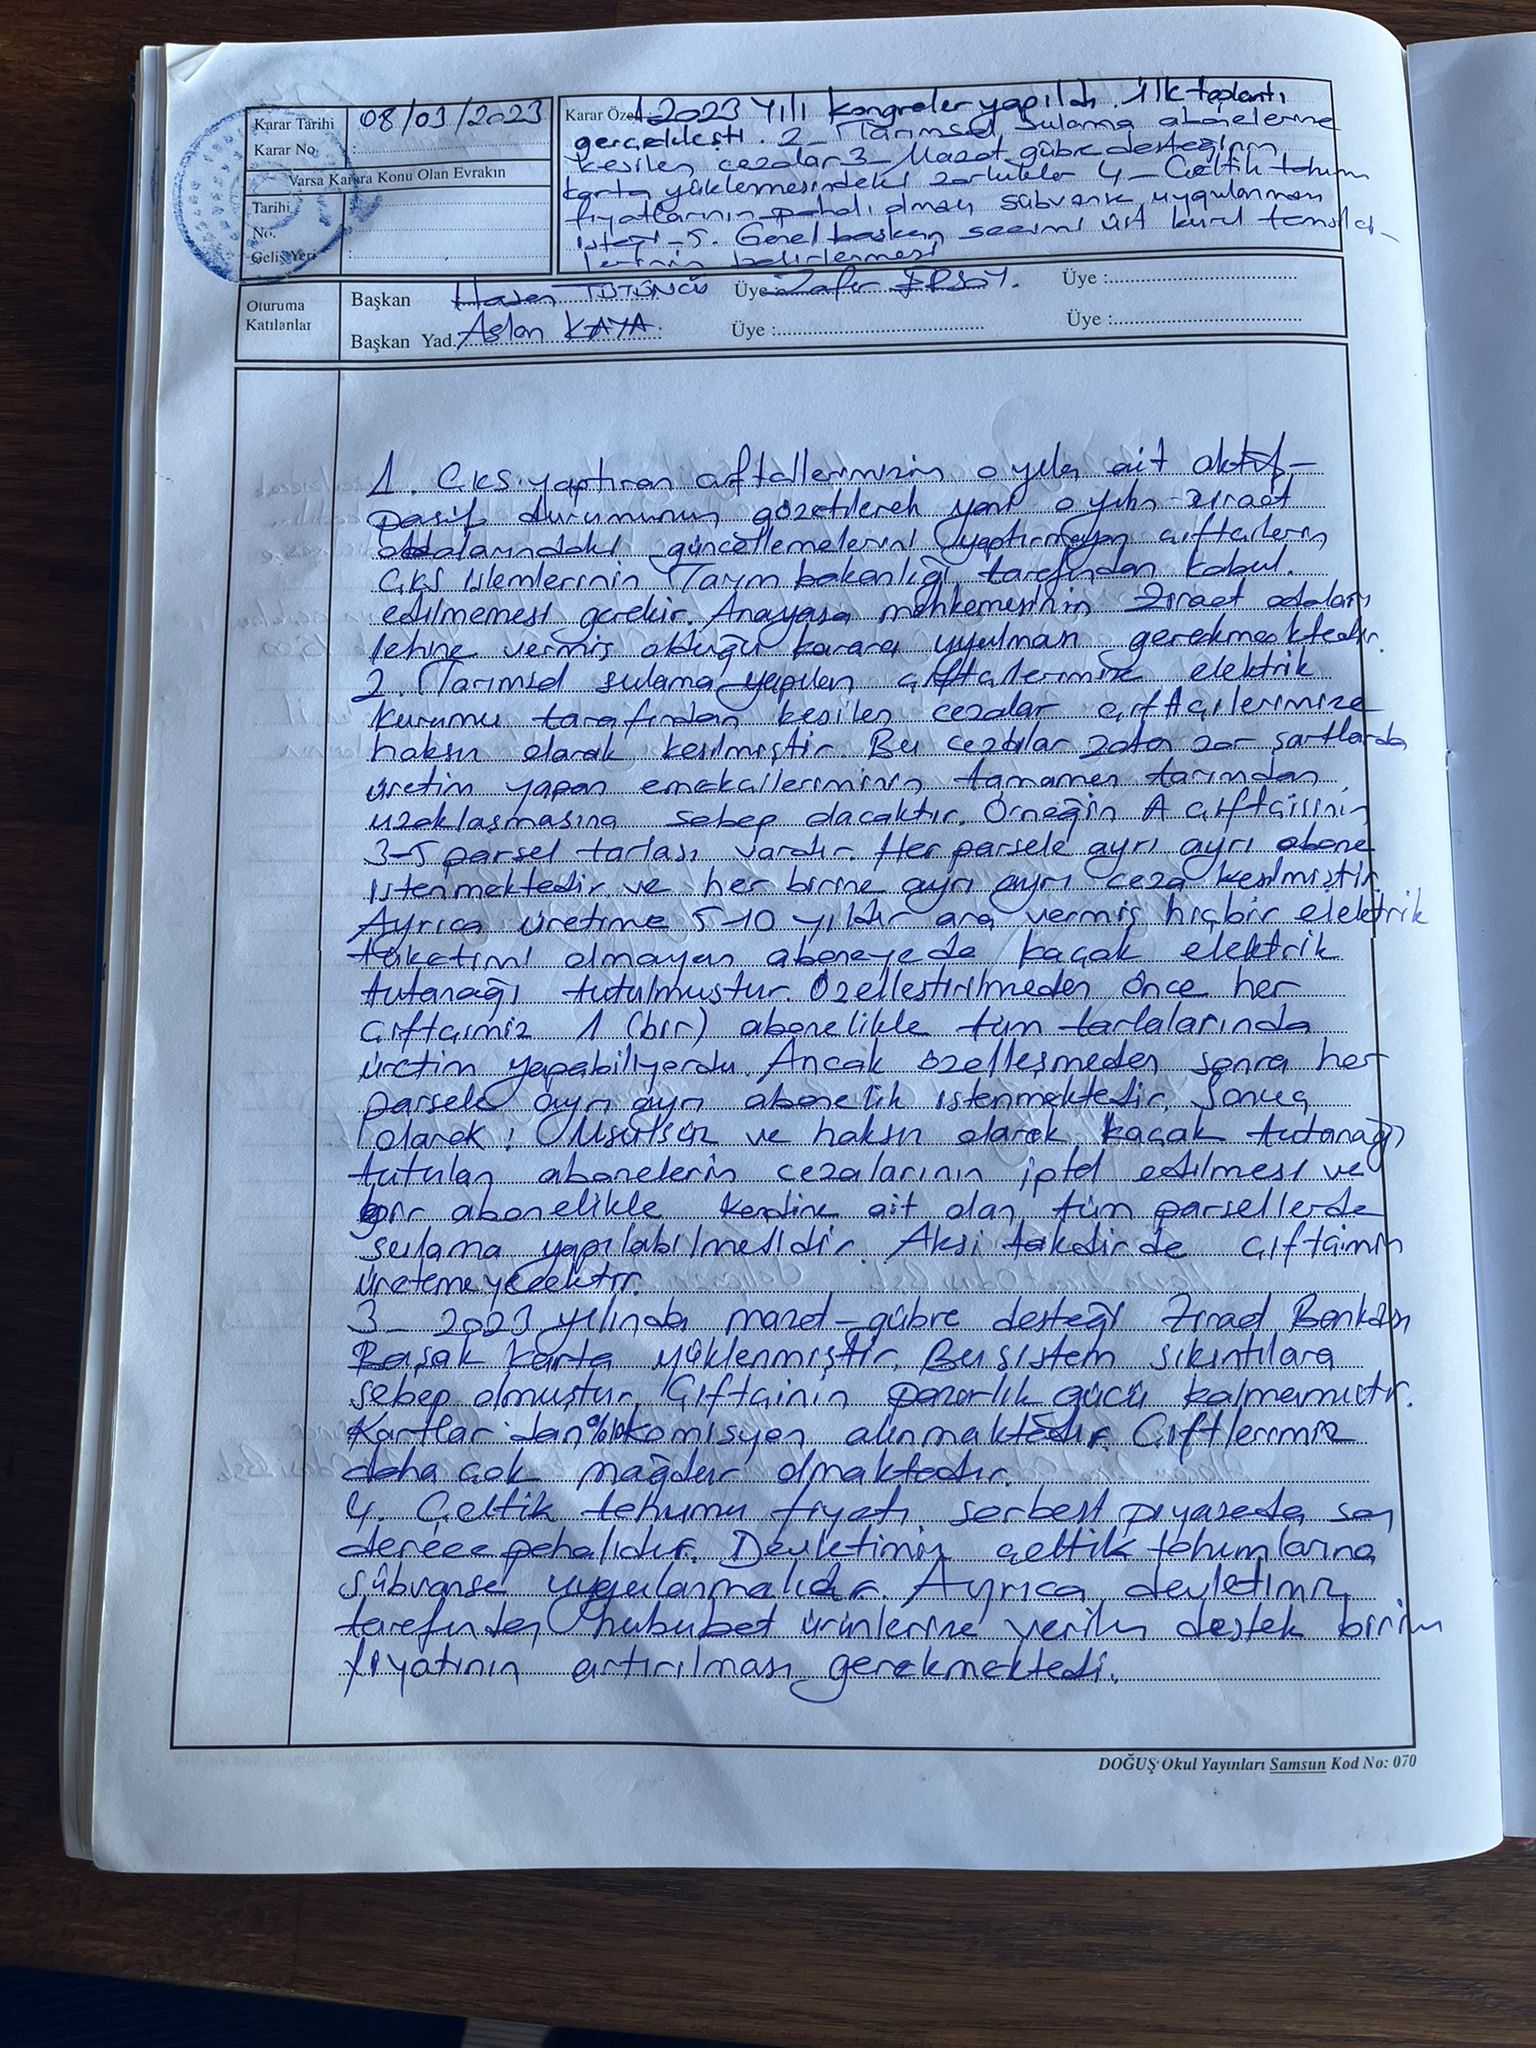 Karar Tarihi 08/03/2023
Karar No. :
Varsa Karara Konu Olan Evrakın
Tarihi :
No. :
Geliş Yeri :
Karar Özeti 1-2023 Yılı kongreler yapıldı. İlk toplantı
gerçekleşti. 2- Tarımsal sulama abonelerine
kesilen cezalar 3- Mazot gübre desteğinin
karta yüklenmesindeki zorluklar 4- Çeltik tohum
fiyatlarının pahalı olması sübvanse uygulanması
isteği -5. Genel başkan seçimi üst kurul temsilci-
lerinin belirlenmesi
Oturuma Katılanlar
Başkan Hasan TÜTÜNCÜ Üye Zafer ERSOY. Üye :
Başkan Yad. Aslan KAYA. Üye : Üye :
1. ÇKS yaptıran çiftçilerimizin o yıla ait aktif-
pasif durumunun gözetilerek yani o yılın ziraat
odalarındaki güncellemelerini yaptırmayan çiftçilerin
ÇKS işlemlerinin Tarım bakanlığı tarafından kabul.
edilmemesi gerekir. Anayasa mahkemesinin Ziraat odaları
lehine vermiş olduğu karara uyulması gerekmektedir.
2. Tarımsal sulama yapılan çiftçilerimize elektrik
kurumu tarafından kesilen cezalar çiftçilerimize
haksız olarak kesilmiştir. Bu cezalar zaten zor şartlarda
üretim yapan emekcileriminin tamamen tarımdan
uzaklaşmasına sebep olacaktır. Örneğin A çiftçisinin
3-5 parsel tarlası vardır. Her parsele ayrı ayrı abone
istenmektedir ve her birine ayrı ayrı ceza kesilmiştir.
Ayrıca üretime 5-10 yıldır ara vermiş hiçbir elektrik
tüketimi olmayan aboneyede kaçak elektrik
tutanağı tutulmuştur. Özelleştirilmeden önce her
çiftçimiz 1 (bir) abonelikle tüm tarlalarında
üretim yapabiliyordu. Ancak özelleşmeden sonra her
parsele ayrı ayrı abonelik istenmektedir. Sonuç
olarak; Usulsüz ve haksız olarak kaçak tutanağı
tutulan abonelerin cezalarının iptal edilmesi ve
bir abonelikle kendine ait olan tüm parsellerde
sulama yapılabilmelidir. Aksi takdirde çiftçimiz
üretemeyecektir.
3- 2023 yılında mazot-gübre desteği Ziraat Bankası
Başak Karta yüklenmiştir. Bu sistem sıkıntılara
sebep olmuştur. Çiftçinin pazarlık gücü kalmamıştır.
Kartlardan komisyon alınmaktadır. Çiftlerimiz
daha çok mağdur olmaktadır.
4. Çeltik tohumu fiyatı serbest piyasada son
derece pahalıdır. Devletimiz çeltik tohumlarına
sübvanse uygulanmalıdır. Ayrıca devletimiz
tarafından hububat ürünlerine verilen destek birim
fiyatının artırılması gerekmektedi.
DOĞUŞ Okul Yayınları Samsun Kod No: 070